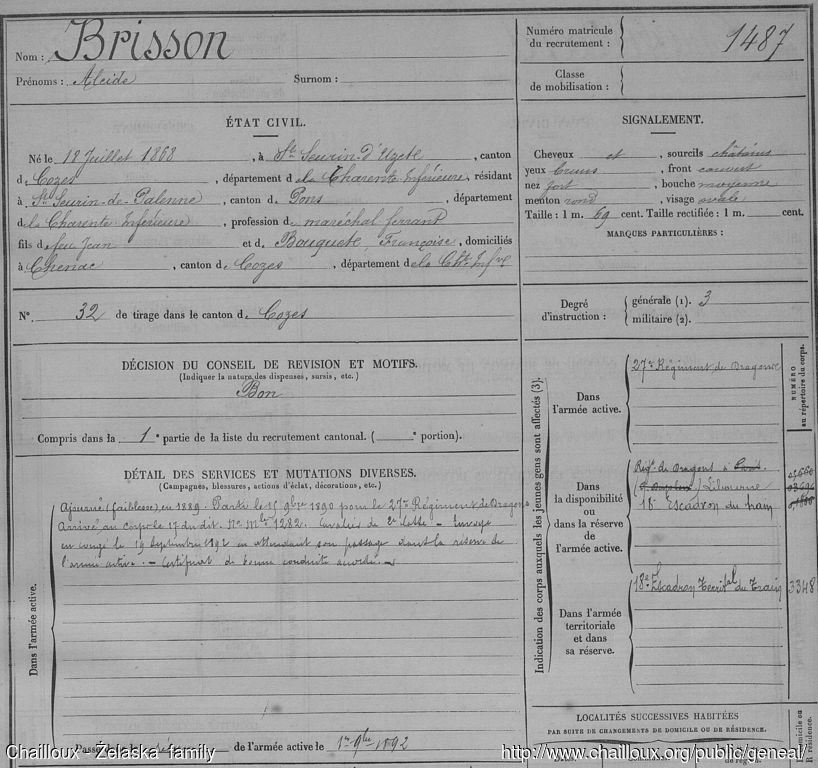 Nom : Brisson
Prénoms : Alcide Surnom :
Numéro matricule du recrutement : 1487
Classe de mobilisation :
ÉTAT CIVIL.
Né le 18 Juillet 1868, à St Seurin-d'Uzet, canton
de Cozes, département de la Charente Inférieure, résidant
à St Seurin-de-Palenne, canton de Pons, département
de la Charente Inférieure, profession de maréchal ferrant
fils de feu Jean et de Bouquete, Françoise, domiciliés
à Chenac, canton de Cozes, département de la Chte Infre
N° 32 de tirage dans le canton de Cozes
SIGNALEMENT.
Cheveux et, sourcils châtains
yeux bruns, front couvert
nez fort, bouche moyenne
menton rond, visage ovale
Taille : 1 m. 69 cent. Taille rectifiée : 1 m. cent.
MARQUES PARTICULIÈRES :
Degré d'instruction : générale (1). 3
militaire (2).
DÉCISION DU CONSEIL DE REVISION ET MOTIFS.
(Indiquer la nature des dispenses, sursis, etc.)
Bon
Compris dans la 1e partie de la liste du recrutement cantonal. ( e portion).
DÉTAIL DES SERVICES ET MUTATIONS DIVERSES.
(Campagnes, blessures, actions d'éclat, décorations, etc.)
Dans l'armée active.
Ajourné (faiblesse) en 1889. Parti le 15 9bre 1890 pour le 27me Régiment de Dragons
Arrivé au corps le 17 du dit. No Mle 1282. Cavalier de 2e classe – Envoyé
en congé le 19 Septembre 1892 en attendant son passage dans la réserve de
l'armée active. – Certificat de bonne conduite accordé. –
Passé dans la réserve de l'armée active le 1er 9bre 1892
Indication des corps auxquels les jeunes gens sont affectés (3).
NUMÉRO au répertoire du corps.
Dans l'armée active.
27e Régiment de Dragons
Dans la disponibilité ou dans la réserve de l'armée active.
Régt. de Dragons à
Libourne
18e Escadron du train
Dans l'armée territoriale et dans sa réserve.
18e Escadron Territal du Train 3348
LOCALITÉS SUCCESSIVES HABITÉES
PAR SUITE DE CHANGEMENTS DE DOMICILE OU DE RÉSIDENCE.
Domicile ou R résidence.
Chailloux - Zelaska family
http://www.chailloux.org/public/geneal/